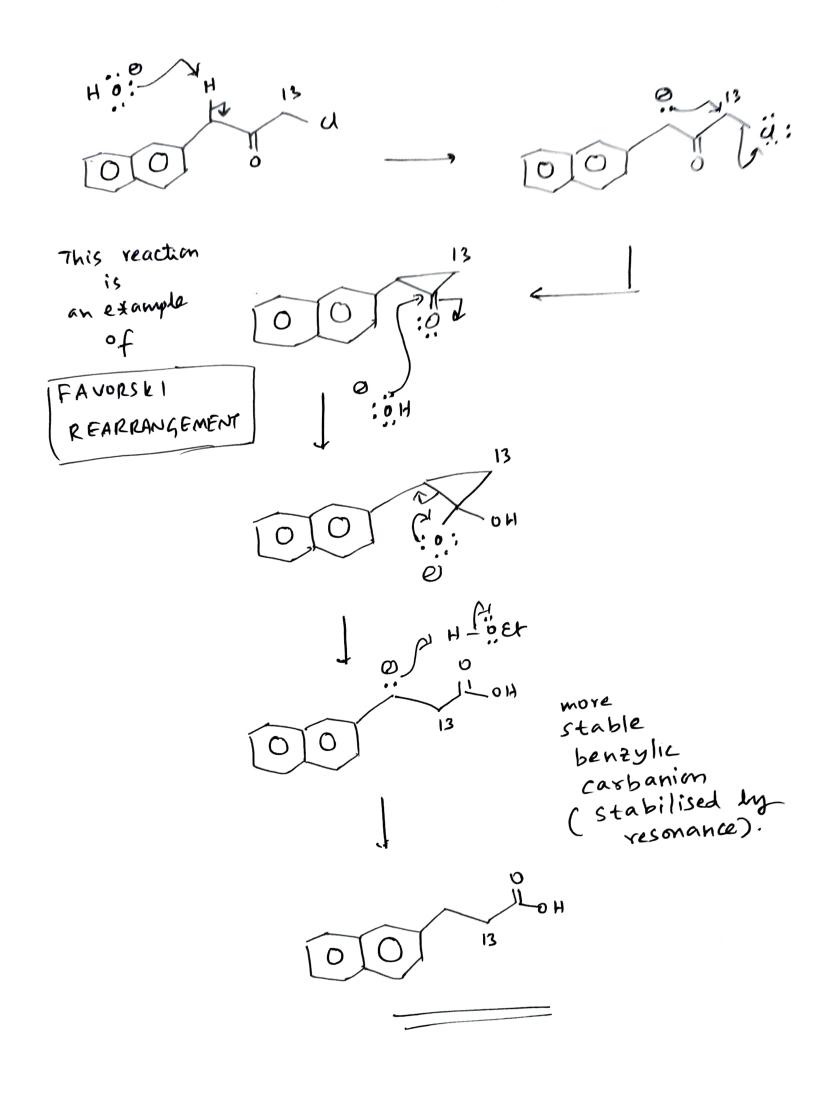 H O ⊖ H 13
Cl
O
⊖ 13
Cl
O
This reaction
is
an example
of
FAVORSKI
REARRANGEMENT
13
O
⊖
OH
13
OH
O
⊖
H - OEt
⊖ O
OH
13
more
stable
benzylic
carbanion
(stabilised by
resonance).
O
OH
13